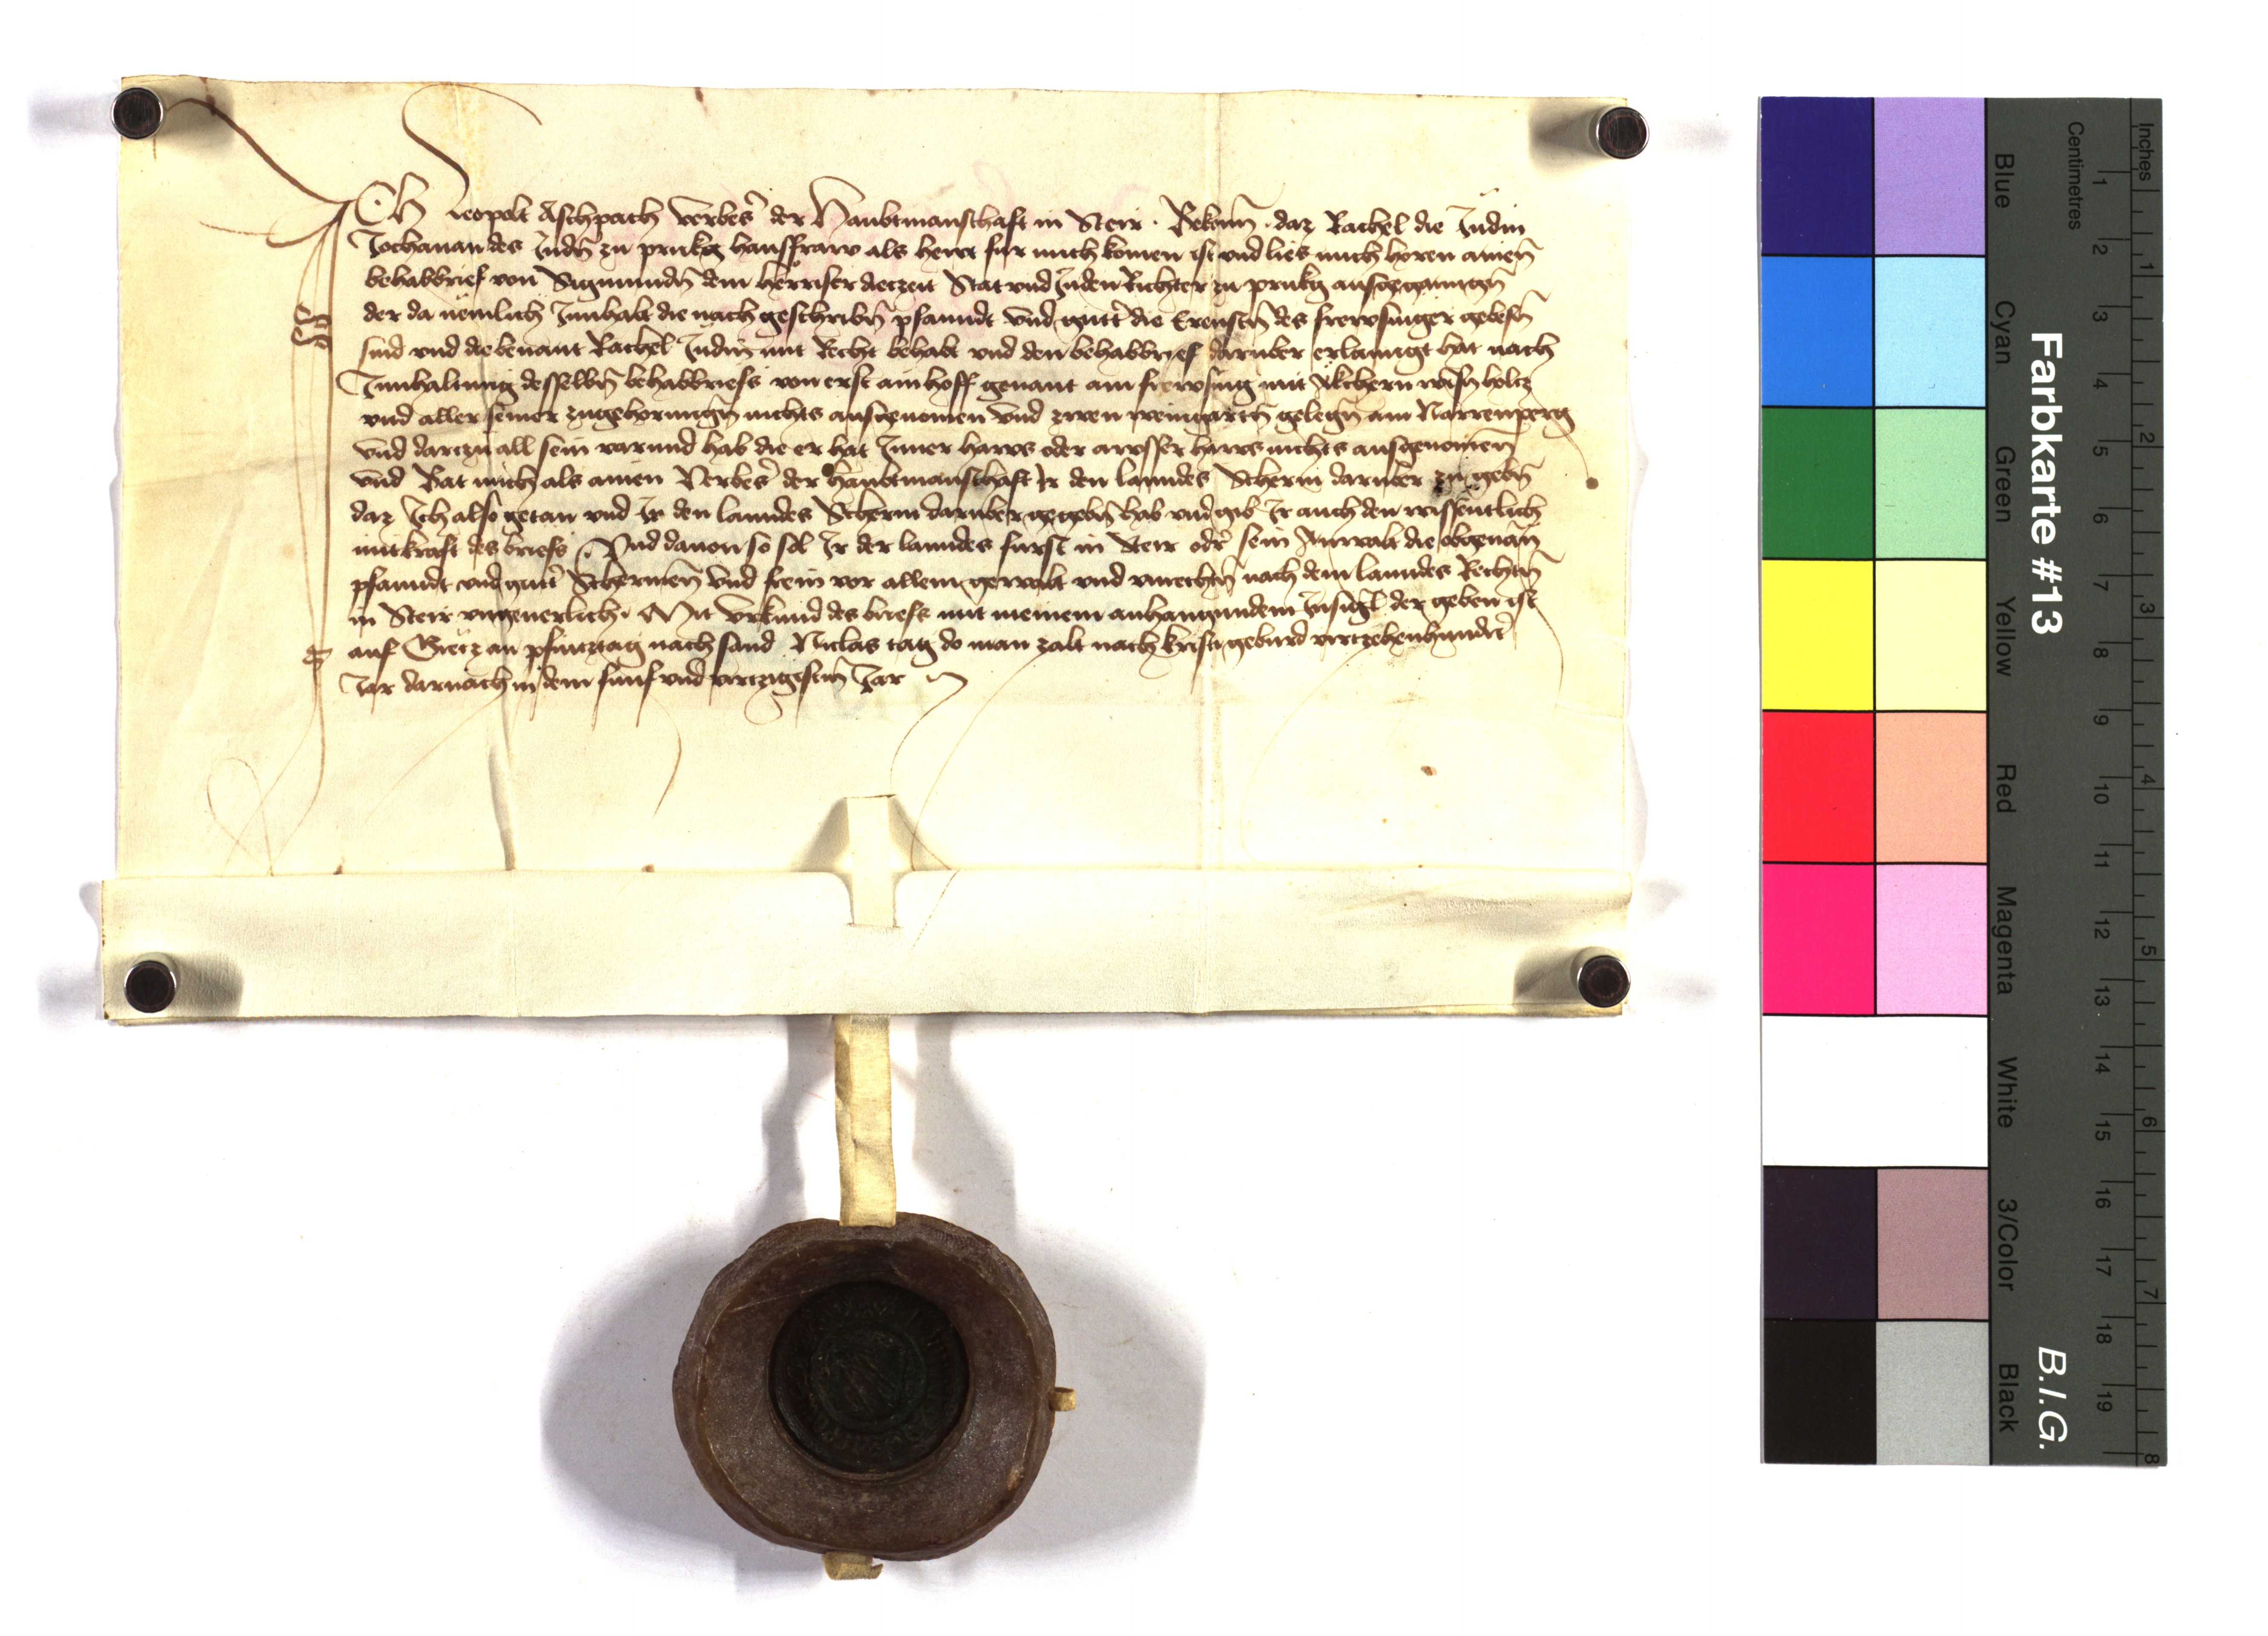 Ich leopolt Aschpach verbes(er) der Haubtmanschaft in Steir · Bekenn · daz Rachel die Judin
Jochanan des Judn̄ zu prukg hausfraw als hewt fur mich komen ist vnd lies mich horen ainen̄
behabbrief von Sigmundn̄ dem herriser die zeit Stat vnd Juden Richter zu prukg ausgegangn̄
der da nemlich Innhabt die nach geschribn̄ pfanndt vnd gutt̾ die des frewsinger gebesn̄
sind vnd die benant Rachel Judin mit Recht behabt vnd den behabbrief daruber erlanngt hat nach
Innhaltung desselbn̄ behabbriefs von erst ain hoff genant am frewsing mit Akchern wisn̄ holtz
vnd aller seiner zugehorungn̄ nichts ausgenomen vnd zwen weingartn̄ gelegn̄ am Narrenperg
vnd dartzu all sein varund hab die er hat Inner haws oder awsser haws nichts ausgenomen̄
vnd Bat mich als ainen Verbes̾ der haubtmanschaft Ir den lanndes Scherm daruber zu gebn̄
daz Ich also getan vnd Ir den lanndes Scherm daruber gegebn̄ hab vnd gib Ir auch den wissentlich
mit kraft des briefs Vnd dauon so sol Ir der lanndes furst in Steir od̾ sein Anwalt die obgenan̄
pfanndt vnd gutt̾ Schermen̄ vnd frein vor allem gewalt vnd vnrechtn̄ nach dem lanndes Rechtn̄
in Steir vngeuerlich · Mit vrkund des briefs mit meinem anhangundem Insigl der geben ist
auf Gretz an pfintztag nach sand Niclas tag do man zalt nach kristi geburd virtzehenhundert
Jar darnach in dem funf vnd virtzigistn̄ Jar
Farbkarte #13
B.I.G.
Inches
Centimetres
1 2 3 4 5 6 7 8
1 2 3 4 5 6 7 8 9 10 11 12 13 14 15 16 17 18 19
Blue
Cyan
Green
Yellow
Red
Magenta
White
3/Color
Black